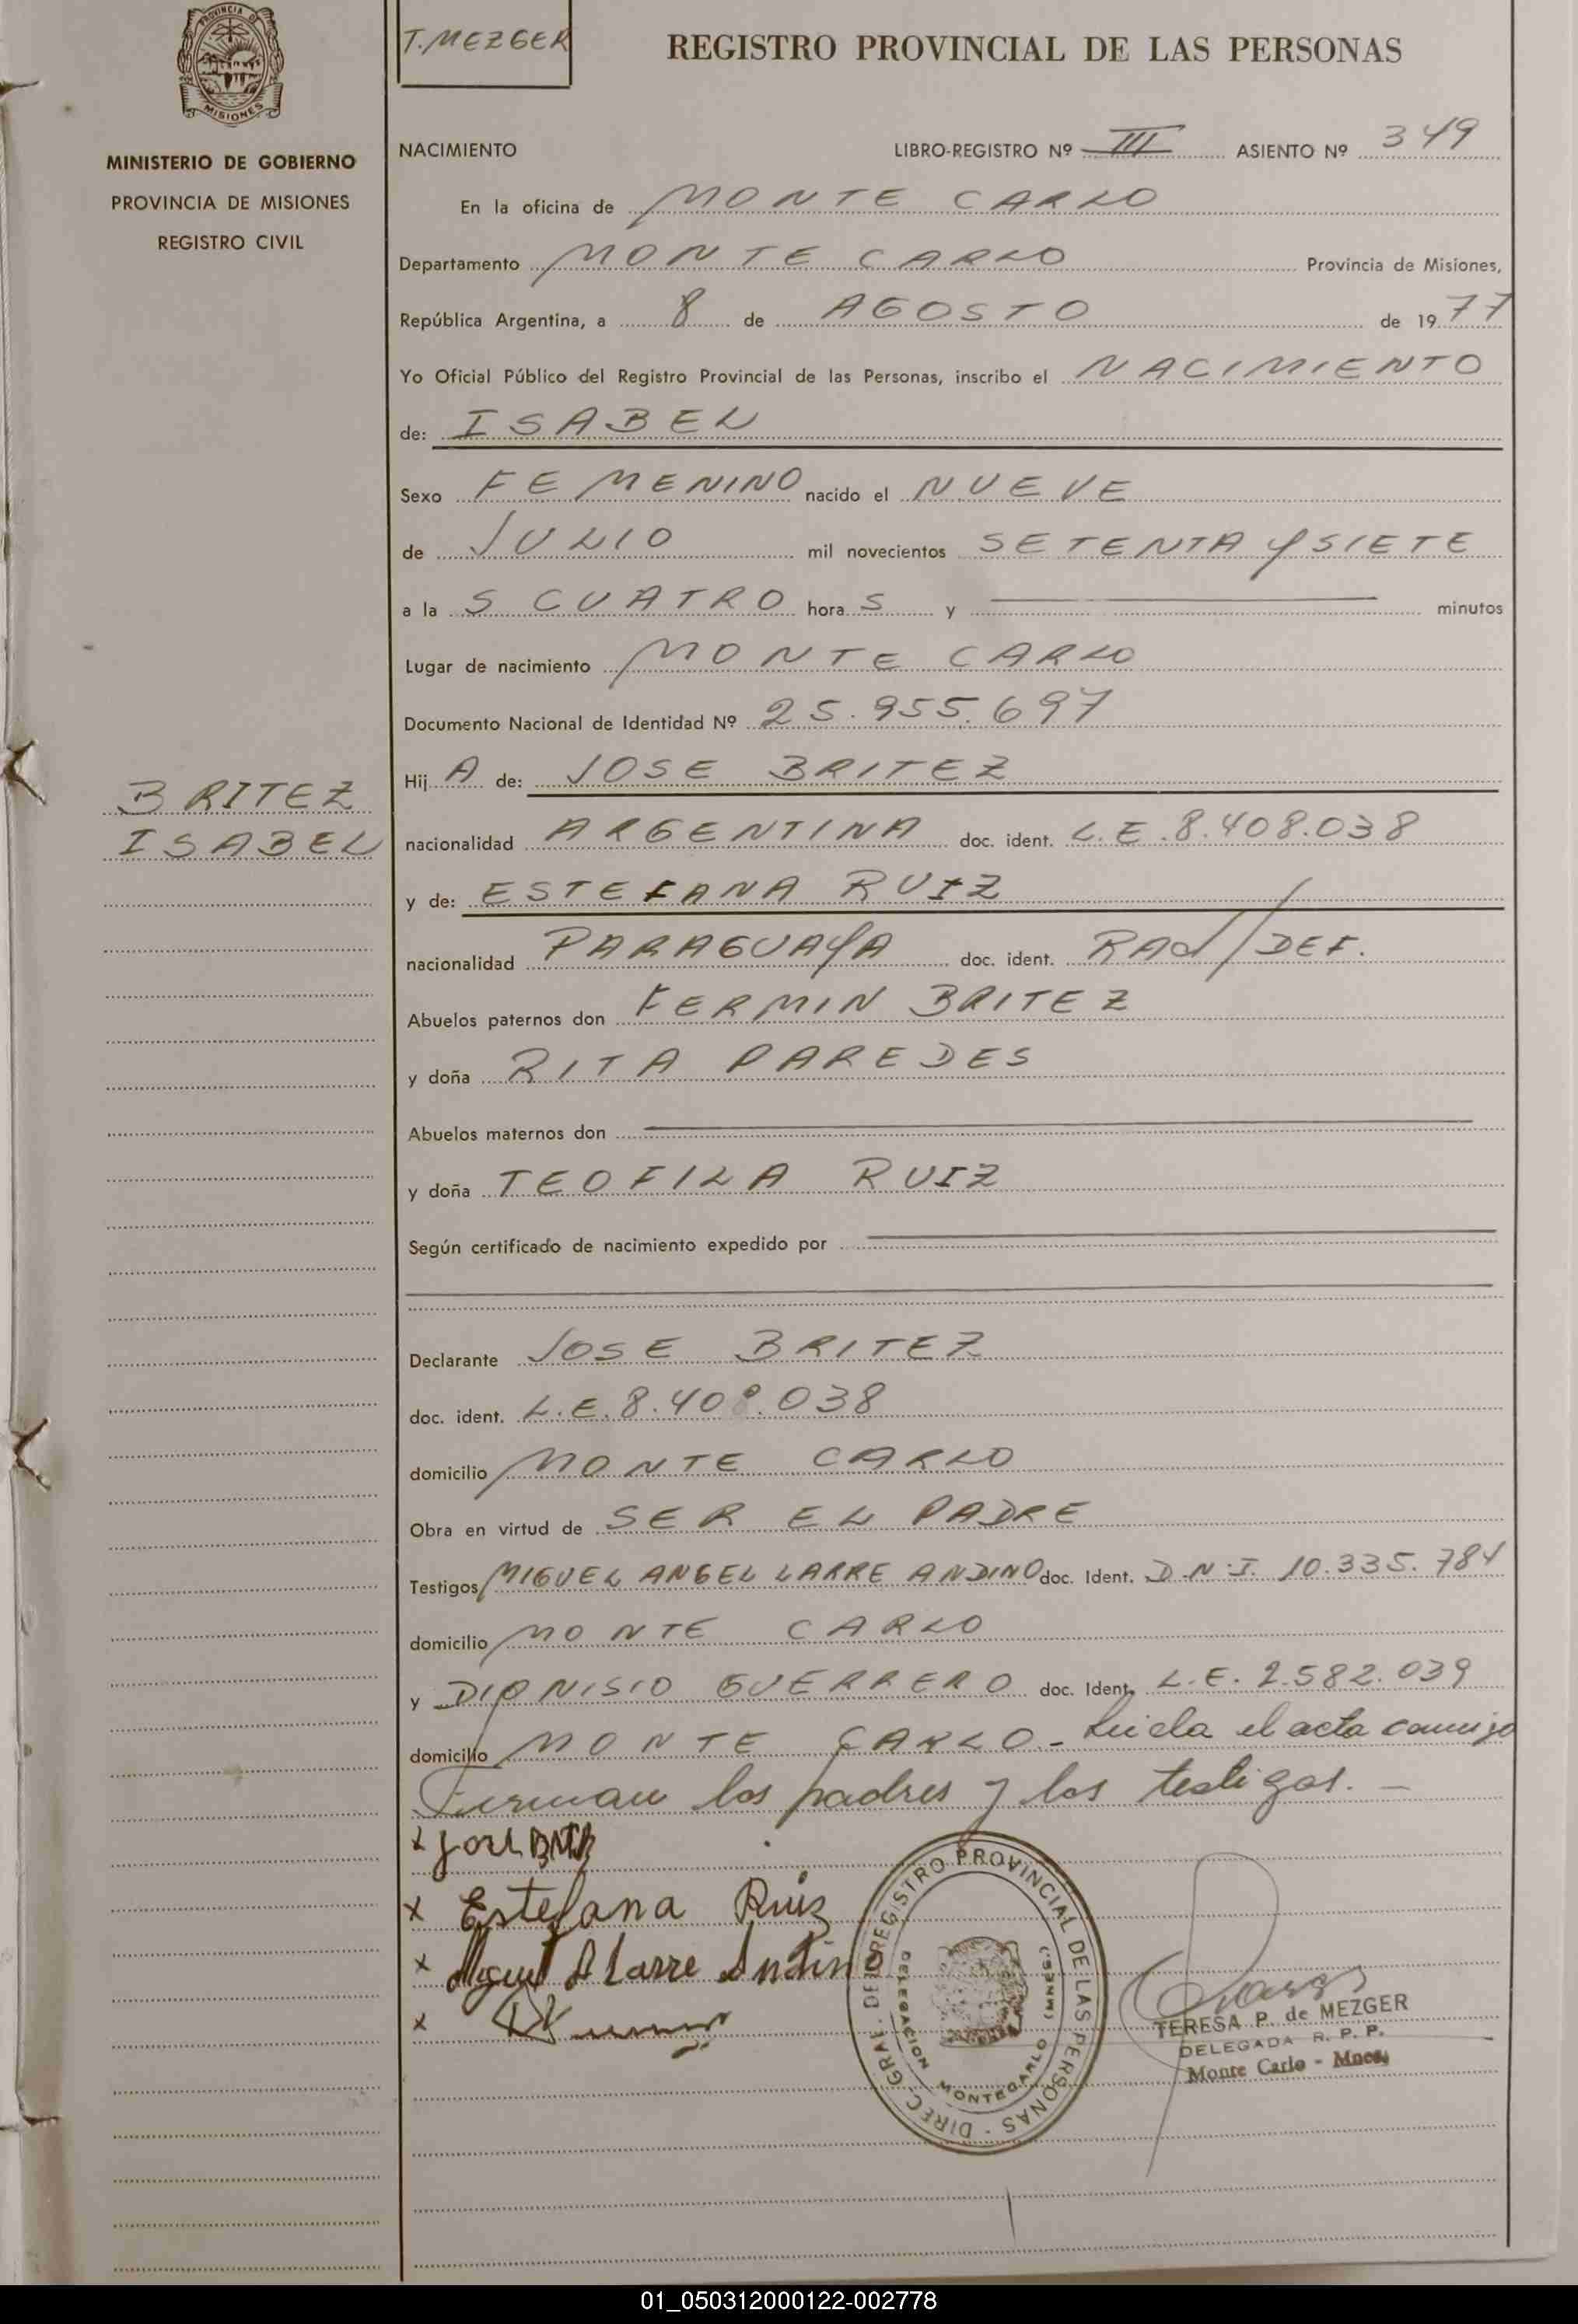 PROVINCIA DE
MISIONES
MINISTERIO DE GOBIERNO
PROVINCIA DE MISIONES
REGISTRO CIVIL
T. MEZGER
REGISTRO PROVINCIAL DE LAS PERSONAS
NACIMIENTO LIBRO-REGISTRO Nº III ASIENTO Nº 349
En la oficina de MONTE CARLO
Departamento MONTE CARLO Provincia de Misiones,
República Argentina, a 8 de AGOSTO de 1977
Yo Oficial Público del Registro Provincial de las Personas, inscribo el NACIMIENTO
de: ISABEL
Sexo FEMENINO nacido el NUEVE
de JULIO mil novecientos SETENTA y SIETE
a la S CUATRO hora S y minutos
Lugar de nacimiento MONTE CARLO
Documento Nacional de Identidad Nº 25.955.697
BRITEZ
ISABEL
Hij A de: JOSE BRITEZ
nacionalidad ARGENTINA doc. ident. L.E. 8.408.038
y de: ESTEFANA RUIZ
nacionalidad PARAGUAYA doc. ident. RAD/DEF.
Abuelos paternos don FERMIN BRITEZ
y doña RITA PAREDES
Abuelos maternos don
y doña TEOFILA RUIZ
Según certificado de nacimiento expedido por
Declarante JOSE BRITEZ
doc. ident. L.E. 8.408.038
domicilio MONTE CARLO
Obra en virtud de SER EL PADRE
Testigos MIGUEL ANGEL LARRE ANDINO doc. Ident. D.N.I. 10.335.784
domicilio MONTE CARLO
y DIONISIO GUERRERO doc. Ident. L.E. 2.582.039
domicilio MONTE CARLO - Leida el acta conmigo
Firman los padres y los testigos. -
x Jose Britez
x Estefana Ruiz
x Miguel A Larre Andino
x
DIREC. GRAL. DEL REGISTRO PROVINCIAL DE LAS PERSONAS -
DELEGACION MONTECARLO (MNES.)
TERESA P. de MEZGER
DELEGADA R. P. P.
Monte Carlo - Mnes.
01_050312000122-002778